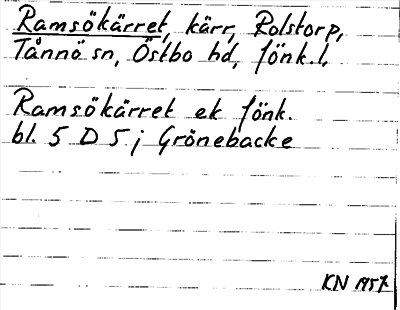 Ramsökärret, kärr, Rolstorp,
Tånnö sn, Östbo hd, Jönk.l.
Ramsökärret ek Jönk.
bl. 5 D 5 j Grönebacke
KN 1957